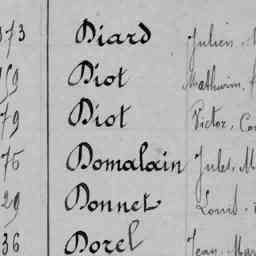 173 Diard Julien
159 Diot Mathurin
79 Diot Victor
76 Domalain Jules
29 Donnet Louis
36 Dorel Jean